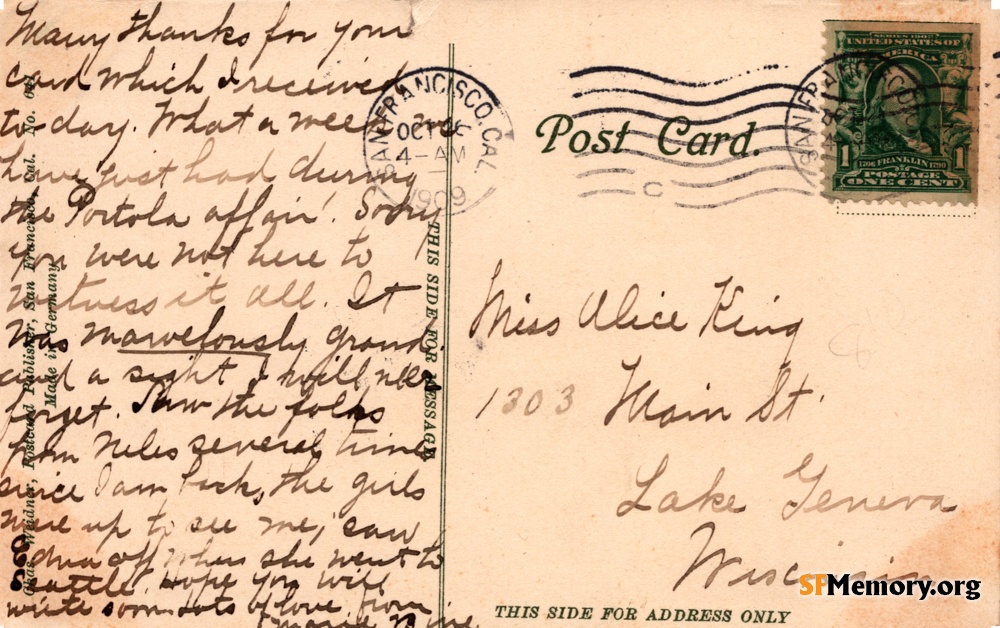 Many thanks for your
card which I received
to-day. What a week we
have just had during
the Portola affair! Sorry
you were not here to
witness it all. It
was marvelously grand.
and a sight I will never
forget. Saw the folks
from Niles several times
since I am back, the girls
were up to see me, saw
Edna off when she went to
Seattle. Hope you will
write soon. Lots of love from
Chas. Weidner, Postcard Publisher, San Francisco, Cal. No.
Made in Germany
THIS SIDE FOR MESSAGE
SAN FRANCISCO, CAL.
OCT
4-AM
1909
C
Post Card.
SAN FRANCISCO
SERIES 1902
UNITED STATES OF
AMERICA
1 1706 FRANKLIN 1790 1
POSTAGE
ONE CENT
Miss Alice King
1303 Main St.
Lake Geneva
Wisconsin
THIS SIDE FOR ADDRESS ONLY
SFMemory.org